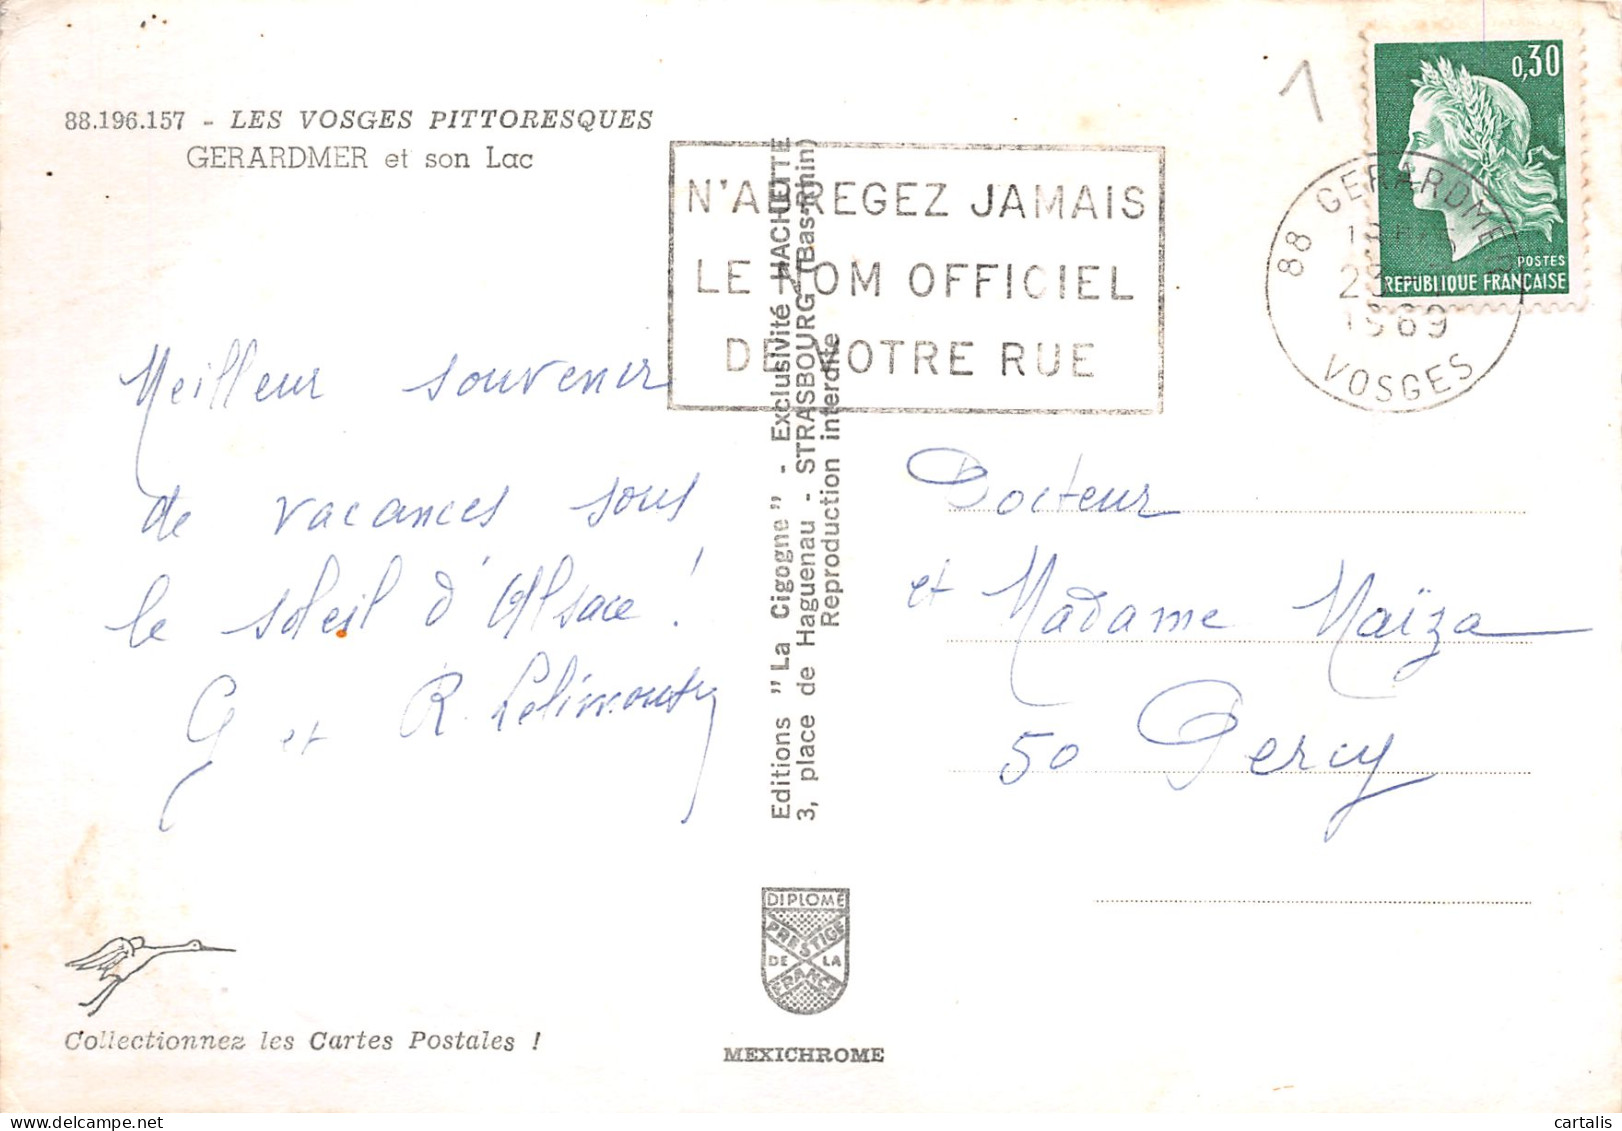 88.196.157 - LES VOSGES PITTORESQUES
GERARDMER et son Lac
N'ABREGEZ JAMAIS
LE NOM OFFICIEL
DE VOTRE RUE
0,30
POSTES
REPUBLIQUE FRANÇAISE
88 GERARDMER
1969
VOSGES
Meilleur souvenir
de vacances sous
le soleil d'Alsace !
G et R.
Editions "La Cigogne" - Exclusivité HACHETTE
3, place de Haguenau - STRASBOURG (Bas-Rhin)
Reproduction interdite
Docteur
et Madame Maïza
50 Percy
DIPLOME
PRESTIGE
DE LA
FRANCE
MEXICHROME
Collectionnez les Cartes Postales !
delcampe.net
cartalis